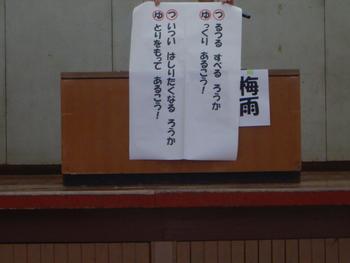 つるつる すべる ろうか
ゆっくり あるこう!
ついつい はしりたくなる ろうか
ゆとりをもって あるこう!
梅雨